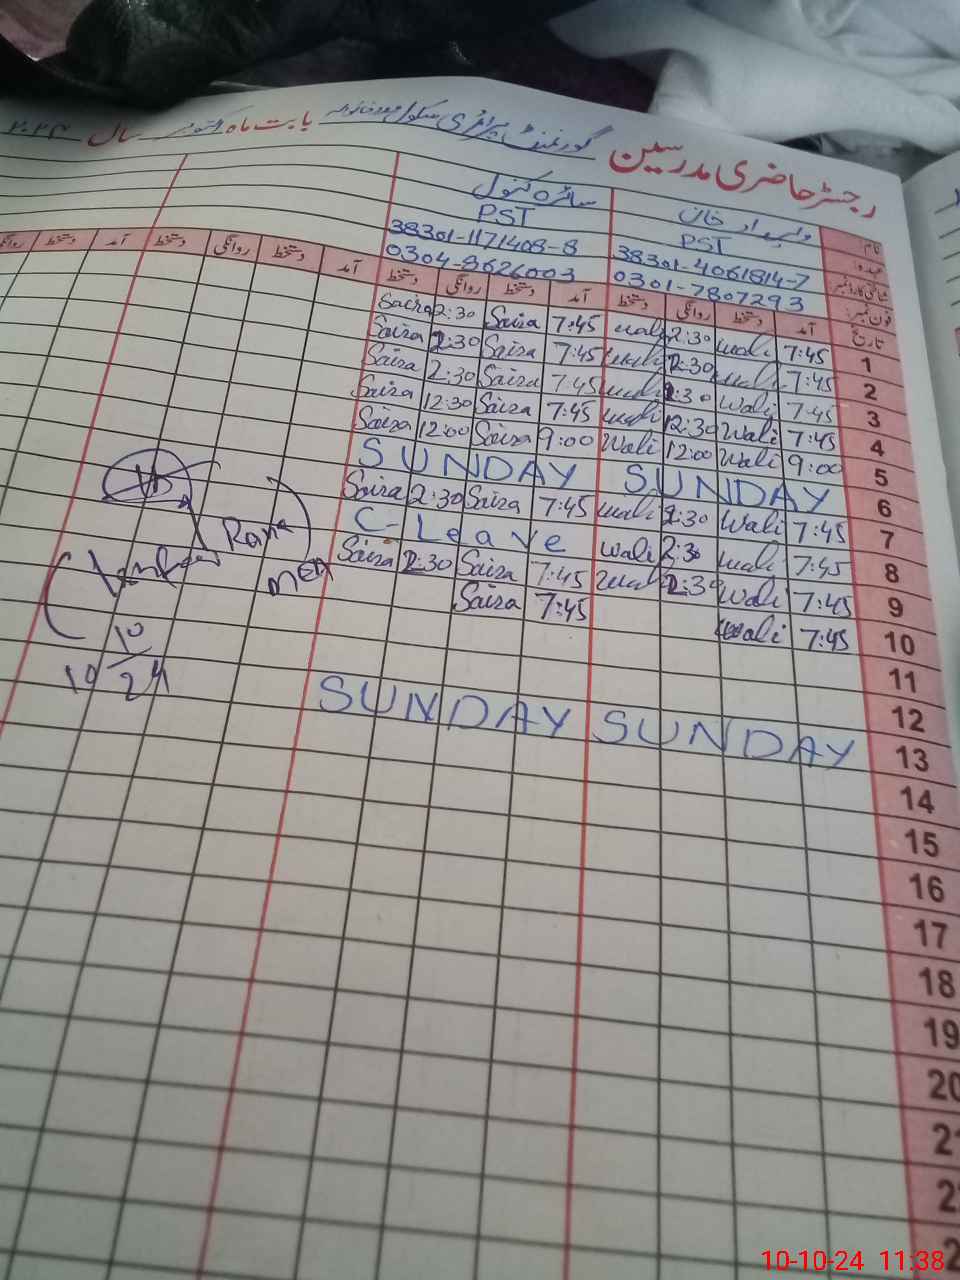 رجسٹر حاضری مدرسین گورنمنٹ پرائمری سکول بابت ماہ اکتوبر سال ۲۰۲۴
نام ولیداد خان سائرہ کنول
عہدہ PST PST
شناختی کارڈ نمبر 38301-4061814-7 38301-1171408-8
فون نمبر: 0301-7807293 0304-8626003
تاریخ آمد دستخط روانگی دستخط آمد دستخط روانگی دستخط آمد دستخط روانگی دستخط آمد دستخط روانگی
1 7:45 wali 2:30 wali 7:45 Saira 2:30 Saira
2 7:45 wali 2:30 wali 7:45 Saira 2:30 Saira
3 7:45 Wali 2:30 wali 7:45 Saiza 2:30 Saiza
4 7:45 Wali 12:30 wali 7:45 Saiza 12:30 Saiza
5 9:00 Wali 12:00 Wali 9:00 Saiza 12:00 Saiza
6 SUNDAY SUNDAY
7 7:45 Wali 2:30 wali 7:45 Saiza 2:30 Saira
8 7:45 wali 2:30 wali C-Leave
9 7:45 Wali 2:30 wali 7:45 Saiza 2:30 Saiza
10 7:45 Wali 7:45 Saiza
11
12
13 SUNDAY SUNDAY
14
15
16
17
18
19
20
Rana
MEA
10
10
24
10-10-24 11:38